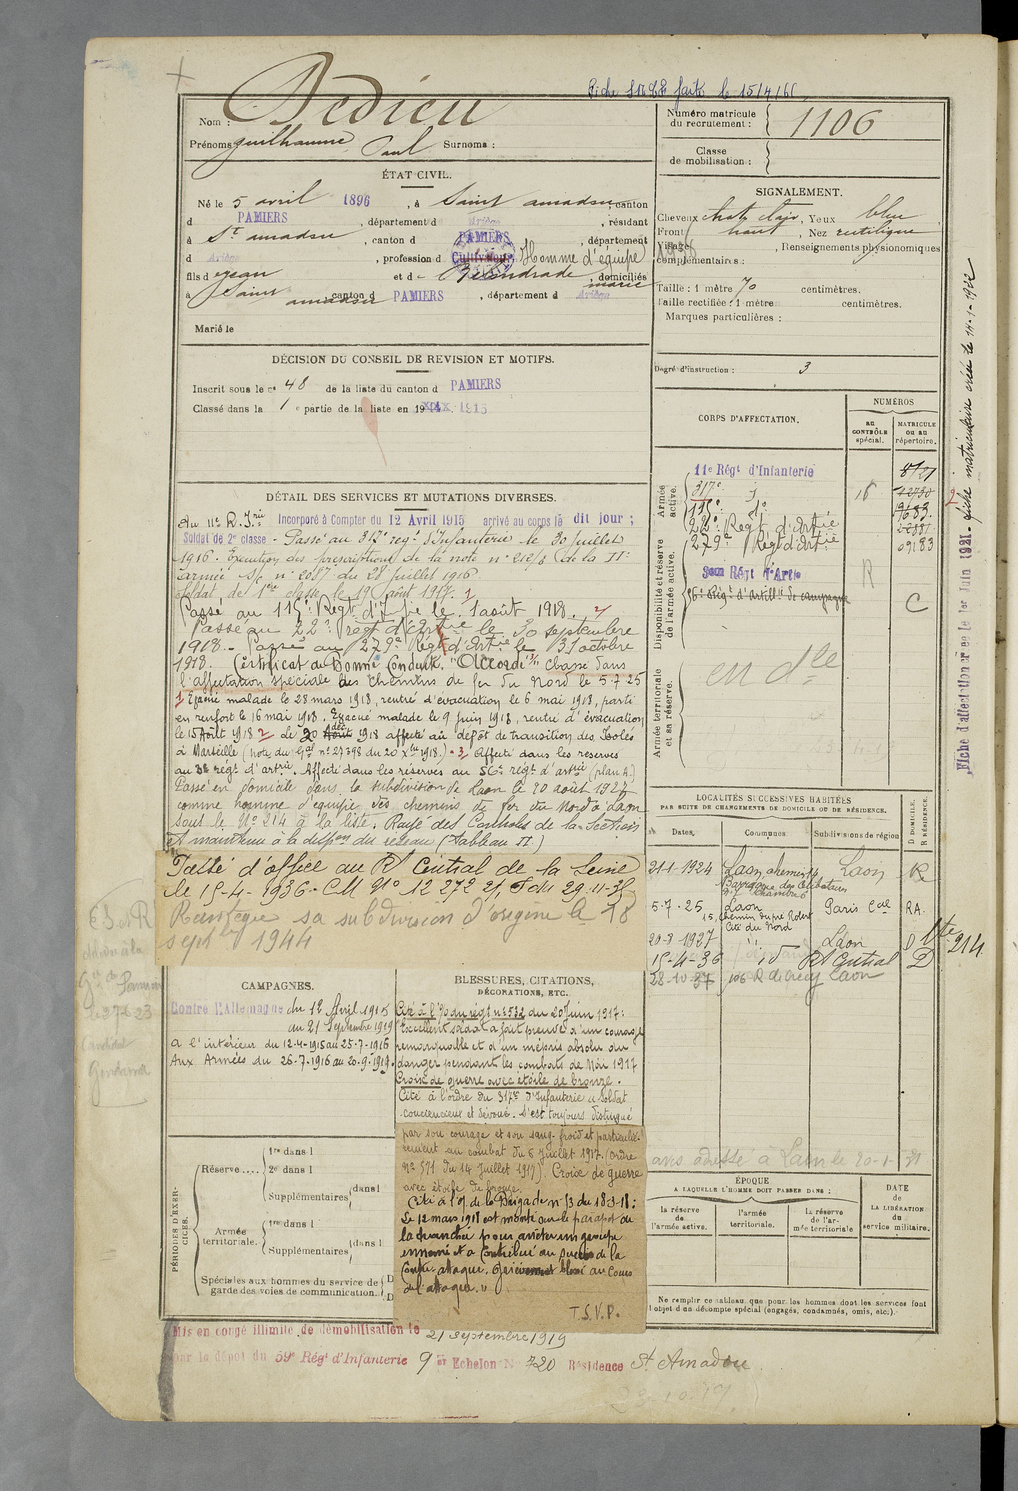 Fiche
Dedieu
Nom :
Prénoms guilhaume Paul Surnoms :
Numéro matricule
du recrutement : 1106
Classe
de mobilisation :
ÉTAT CIVIL.
Né le 5 avril 1896, à Saint amadou canton
d PAMIERS, département d Ariège, résidant
à St amadou, canton d PAMIERS, département
d Ariège, profession d Cultivateur Homme d'équipe
fils d jean et d , domiciliés
à Saint amadou canton d PAMIERS, département d Ariège
Marié le
SIGNALEMENT.
Cheveux chat. clair, Yeux bleu
Front haut, Nez rectiligne
Visage , Renseignements physionomiques
complémentaires :
Taille : 1 mètre 70 centimètres.
Taille rectifiée : 1 mètre centimètres.
Marques particulières :
Degré d'instruction : 3
DÉCISION DU CONSEIL DE REVISION ET MOTIFS.
Inscrit sous le n° 48 de la liste du canton d PAMIERS
Classé dans la 1 e partie de la liste en 19 1915
CORPS D'AFFECTATION.
NUMÉROS
au
CONTRÔLE
spécial.
MATRICULE
ou au
répertoire.
Armée
active.
11e Régt d'Infanterie
317e d°
115e d°
22e Regt d'Artie
279e Régt d'Artie
Disponibilité et réserve
de l'armée active.
R
56e Régt d'Artillie de campagne
C
Armée territoriale
et sa réserve.
en dle
Fiche d'affectation créée le 1er Juin 1921. fiche matriculaire créée le 14-1-1922
DÉTAIL DES SERVICES ET MUTATIONS DIVERSES.
Au 11e R. Irie Incorporé à Compter du 12 Avril 1915 arrivé au corps le dit jour ;
Soldat de 2e classe - Passé au 317e régt d'Infanterie le 30 juillet
1916. Exécution des prescriptions de la note n° 212/6 de la IIe
armée S/c n° 2087 du 28 juillet 1916.
Soldat de 1ère classe le 19 Août 1917. 1
Passé au 115e Regt d'Infie le 1 août 1918. 2
Passé au 22e regt d'Artie le 30 septembre
1918. - Passé au 279e Régt d'Artie le 31 octobre
1918. Certificat de Bonne Conduite "Accordé" Classé dans
l'affectation spéciale des chemins de fer du Nord le 5.7.25
1 Evacué malade le 28 mars 1918, rentré d'évacuation le 6 mai 1918, parti
en renfort le 16 mai 1918. Evacué malade le 9 juin 1918, rentré d'évacuation
le 15 Août 1918 2 Le 20 Août déc 1918 affecté au dépôt de transition des Isolés
à Marseille (note du Gal n° 27398 du 20 Xbre 1918.) - 3 Affecté dans les reserves
au 3e régt d'artrie. Affecté dans les réserves au 56e régt d'artrie (plan A.)
Passé en domicile dans la subdivision de Laon le 20 août 1927
comme homme d'équipe des chemins de fer du Nord à Laon
sous le N° 214 à la liste. Rayé des Contrôles de la Section
et maintenu à la dispon du réseau (Tableau II)
Passé d'office au Rt Central de la Seine
le 15-4-1936 - CM N° 12 272 2/1 du 29-11-35
Reintègre sa subdivision d'origine le 18
septbre 1944
LOCALITÉS SUCCESSIVES HABITÉES
PAR SUITE DE CHANGEMENTS DE DOMICILE OU DE RÉSIDENCE.
Dates. Communes Subdivisions de région D DOMICILE. R RÉSIDENCE.
21-1-1924 Laon, chemin 14 Laon R
Baraque des Célibataires
Chambre
5-7-25 Laon Paris Cal RA.
15, chemin du pré Robert
Cité du Nord
20-8-1927 " Laon D
15-4-36 id Rt Central D
28-10-37 Laon
Lte 214
avis adressé à Laon le 20-1-31
CAMPAGNES.
Contre l'Allemagne du 12 Avril 1915
au 21 Septembre 1919
A l'intérieur du 12-4-1915 au 25-7-1916
Aux Armées du 26-7-1916 au 20-9-1919.
BLESSURES, CITATIONS,
DÉCORATIONS, ETC.
Cité à l'O du régt n° 532 du 20 Juin 1917:
"Excellent soldat a fait preuve d'un courage
remarquable et d'un mépris absolu du
danger pendant les combats de Mai 1917
Croix de guerre avec étoile de bronze.
Cité à l'ordre du 317e d'Infanterie « Soldat
consciencieux et dévoué. S'est toujours distingué
par son courage et son sang-froid et particuliè-
rement au combat du 6 juillet 1917. (ordre
n° 571 du 14 juillet 1917). Croix de guerre
avec étoile de bronze.
Cité à l'O/ de la Brigade n° 13 du 18-3-18 :
Le 12 mars 1918 est monté sur le parapet de
la tranchée pour arrêter un groupe
ennemi et a contribué au succès de la
Contre-attaque. Grièvement blessé au cours
de l'attaque. »
T.S.V.P.
PÉRIODES D'EXER-
CICES.
Réserve....
1re dans l
2e dans l
Supplémentaires dans l
Armée
territoriale.
1re dans l
Supplémentaires dans l
Spéciales aux hommes du service de
garde des voies de communication.
ÉPOQUE
A LAQUELLE L'HOMME DOIT PASSER DANS :
la réserve
de
l'armée active.
l'armée
territoriale.
la réserve
de l'ar-
mée territoriale
DATE
de
LA LIBÉRATION
du
service militaire.
Ne remplir ce tableau que pour les hommes dont les services font
l'objet d'un décompte spécial (engagés, condamnés, omis, etc.).
Mis en congé illimité de démobilisation le 21 septembre 1919
par le dépôt du 59e Régt d'Infanterie 9 e Echelon N° 220 Résidence St Amadou
Candidat
Gendarme